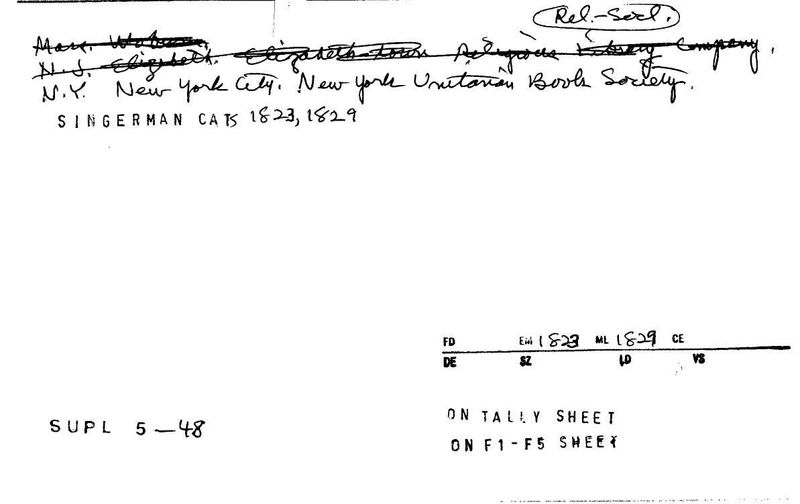 Rel.-Socl.
Mass. Woburn.
N.J. Elizabeth. Elizabeth-town Religious Library Company.
N.Y. New York City. New York Unitarian Book Society.
SINGERMAN CATS 1823, 1829
FD EM 1823 ML 1829 CE
DE SZ LD VS
SUPL 5-48
ON TALLY SHEET
ON F1-F5 SHEET